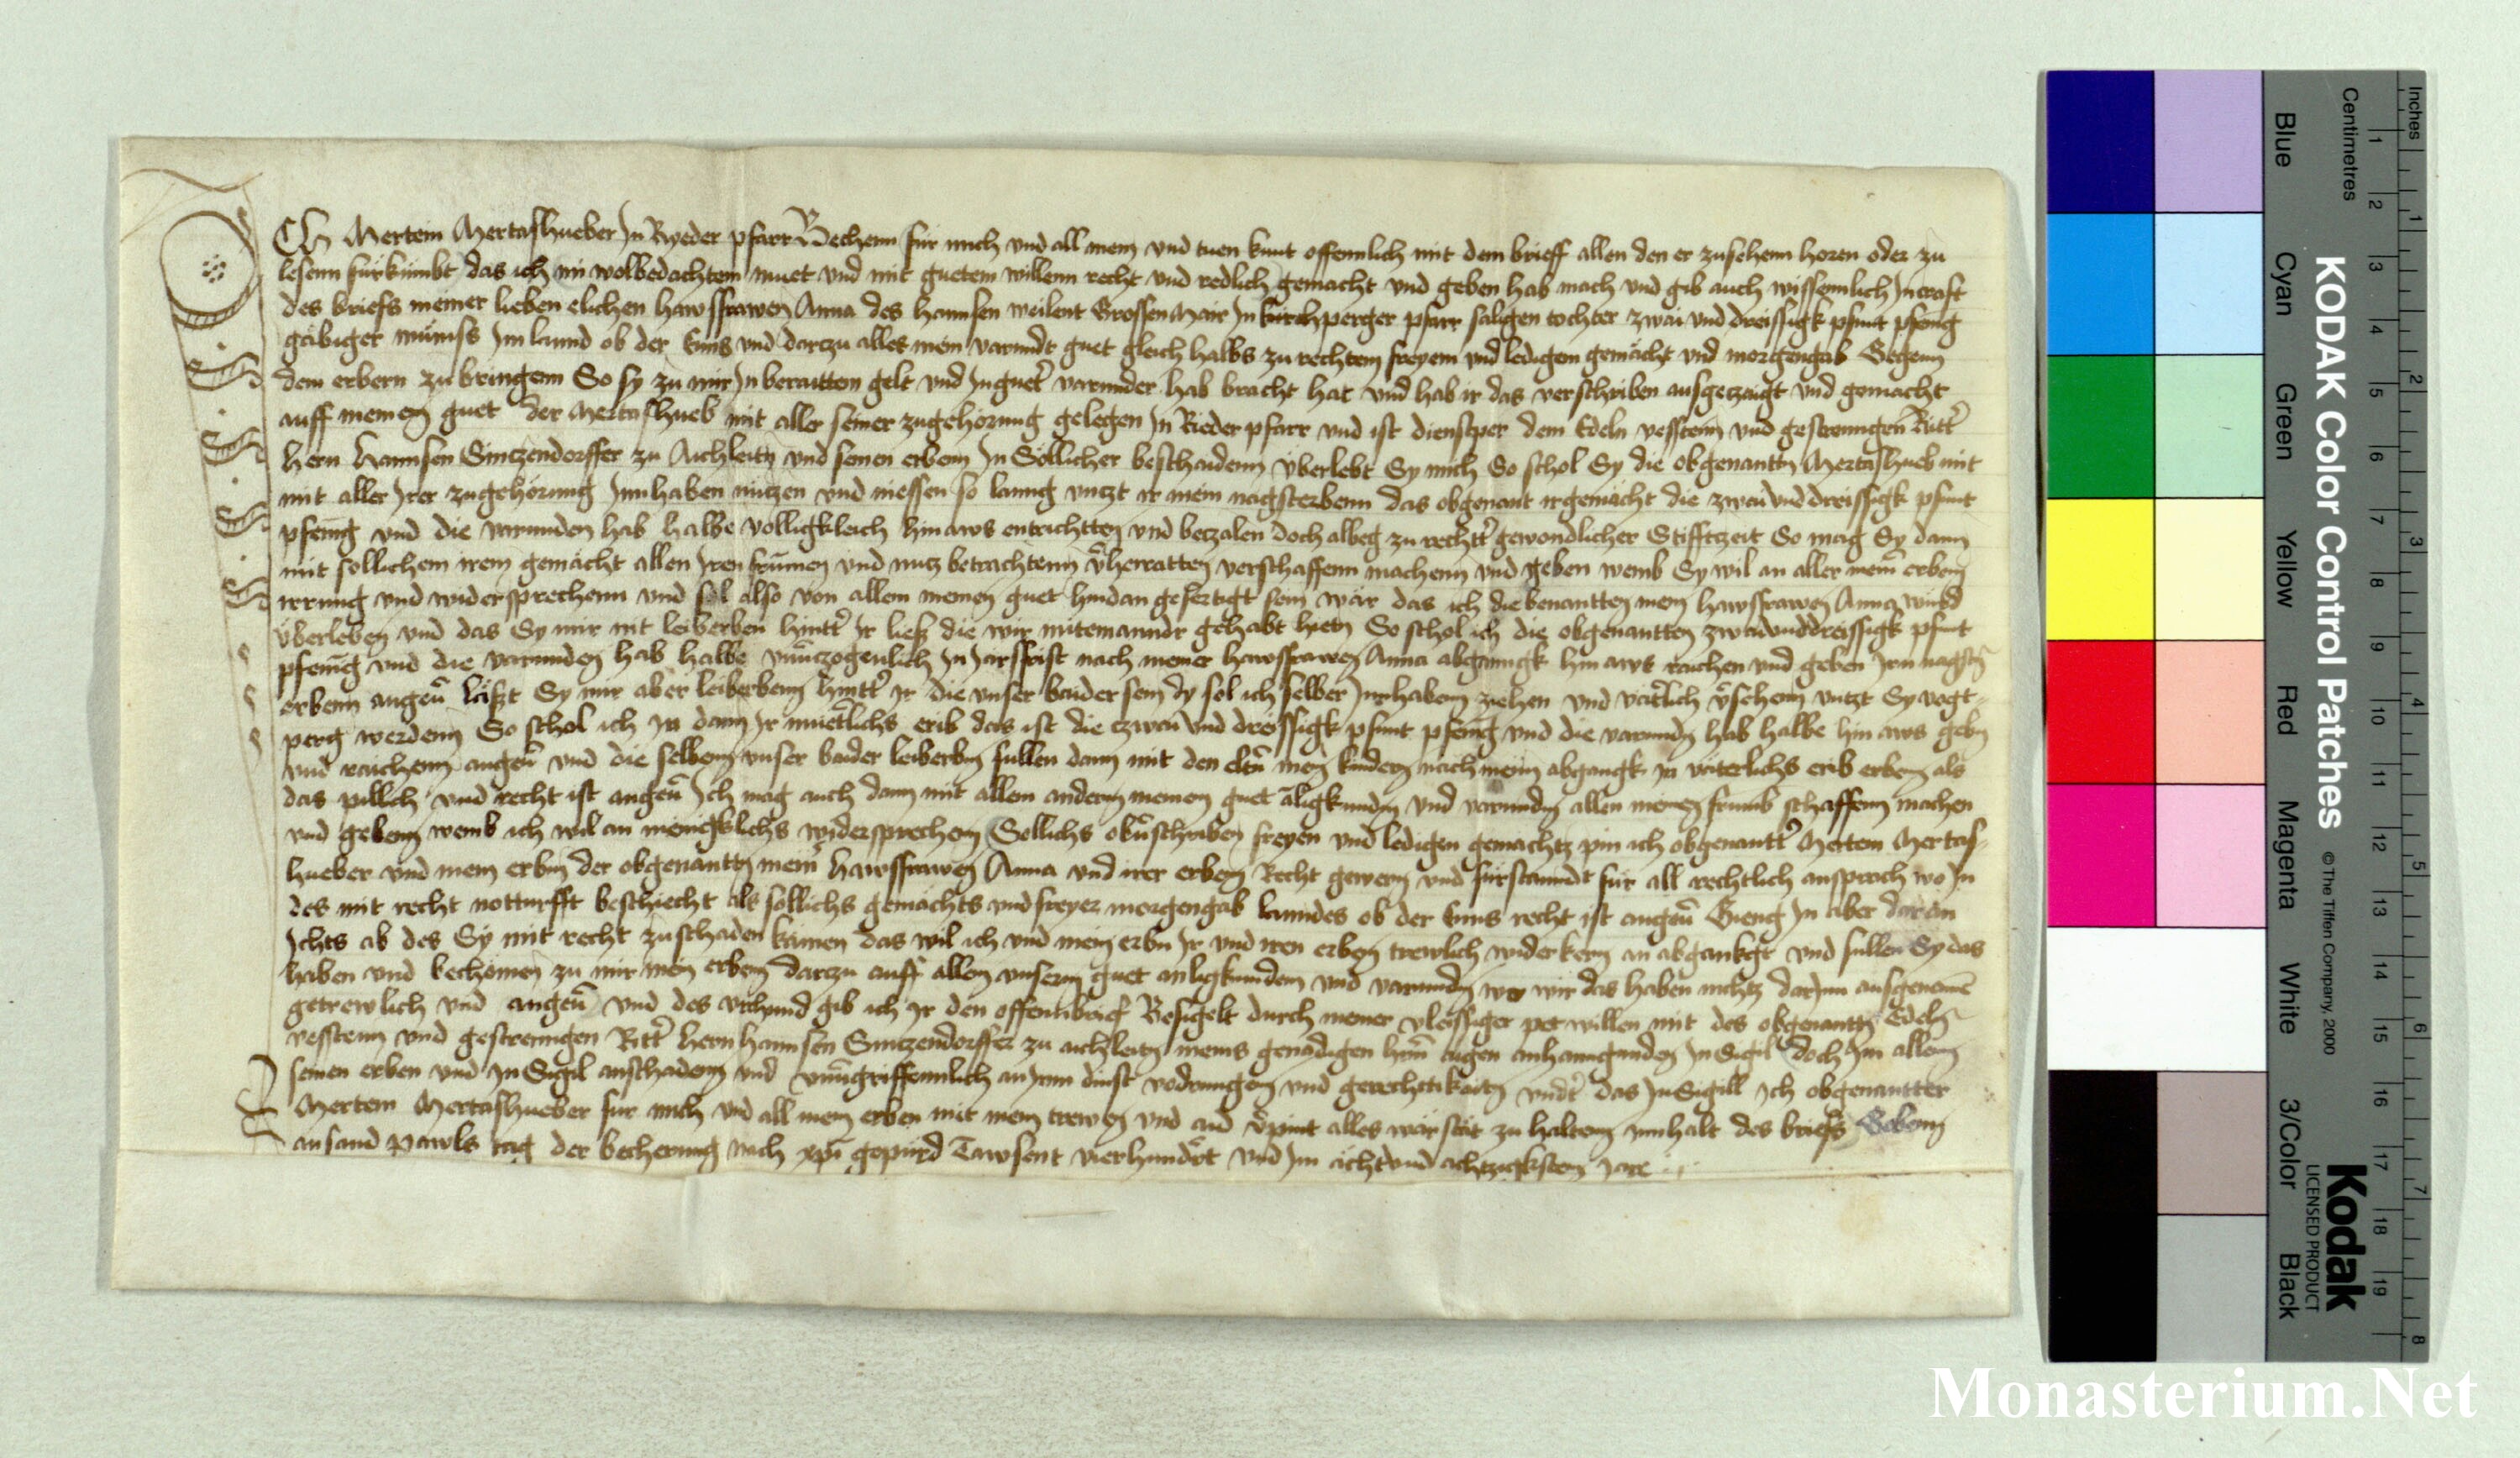 ICH Mertein Mertaslhueber In Ryeder pfarr Bechenn für mich vnd all mein vnd tuen kunt offennlich mit dem brieff allen den er zusehenn horen oder zu
lesenn fürkumbt das ich mi wolbedachtem muet vnd mit guetem willenn recht vnd redlich gemacht vnd geben hab mach vnd gib auch wissennlich In craft
des briefs meiner lieben elichen hawsfrawen Anna des hannsen weilent Grossen Mair In kirchperger pfarr saligen tochter zwai vnd dreissigk pfunt pfenig
gäbiger münnss Im lannd ob der Enns vnd darczu alles mein varundt guet gleich halbs zu rechtem freyem vnd ledigem gemächt vnd morgengab Gegenn
dem erbern zubringenn So sy zu mir In beraittem gelt vnd In guetr varunder hab bracht hat vnd hab ir das verschriben ausgeczaigt vnd gemacht
auff meinem guet der Mertaslhueb mit aller seiner zugehörung gelegen In Rieder pfarr vnd ist dienstper dem Edeln vesstenn vnd gestrenngen Rittr
hern Hannsen Sinczendorffer zu Aichleitn vnd seinen erbenn In Söllicher beschaidenn vberlebt Sy mich So schol Sy die obgenantn Mertaslhueb mit
mit aller Irer zugehörung Innhaben nuczen vnd niessen so lanng vnczt ir mein nagsterbenn das obgenant ir gemächt die zwai vnd dreissigk pfunt
pfenig vnd die varunden hab halbe volligkleich hin aws entrichtten vnd beczalen doch albeg zu rechtr gewondlicher Stifftzeit So mag Sy dann
mit sollichem irem gemächt allen Iren frumen vnd nucz betrachtenn vherratten verschaffenn machenn vnd geben wemb Sy wil an aller meinr erben
irrung vnd widersprechenn vnd sol also von allem meinen guet hindan gefertigt sein wär das ich die benantten mein hawsfrawen Anna wurd
vberleben vnd das Sy mir nit leiberben hinttr Ir liess die wir miteinanndr gehabt hietn So schol ich die obgenantten zwaivnddreissigk pfunt
pfenig vnd die varunden hab halbe vnuerczogenlich In Jarsfrist nach meiner hawsfrawen Anna abganngk hin aws raichen vnd geben Irn nagstn
erbenn angeur läszt Sy mir aber leiberbenn hinttr Ir die vnser baider sein dy sol ich selber Innhaben ziehen vnd vätrlich vrsehenn vnczt Sy vogt-
perg werdenn So schol ich In dann Ir muetrlichs erib das ist die czwai vnd dreissigk pfunt pfenig vnd die varundn hab halbe hin aws gebn
vnd raichenn angeur vnd die selbenn vnser baider leiberbn sullen dann mit den eltrn mein kindern nach meinn abgangk In väterlichs erib erben als
das pillich vnd recht ist angeur Ich mag auch dann mit allem anderm meinem guet aligkundn vnd varundn allen meinen frumb schaffenn machen
vnd gebenn wemb ich wil an menigklichs widersprechenn Sollichs obuerschriben freyen vnd ledigen gemächtz pin ich obgenanttr Mertein Mertasl-
hueber vnd mein erbn der obgenantn meinr hawsfrawen Anna vnd irer erben Recht gewern vnd fürstanndt für all rechtlich ansprach wo In
des mit recht notturfft beschiecht als söllichs gemächts vnd freyer morgengab lanndes ob der Enns recht ist angeur Gieng In aber daran
Ichts ab des Sy mit recht zu schaden kämen das wil ich vnd mein erbn Ir vnd iren erben trewlich widerkern an abgankgk vnd sullen Sy das
haben vnd bechömen zu mir mein erben darczu auff allem vnserm guet anligkunden vnd varundn wo wir das haben nichtz darInn ausgenome
getrewlich vnd angeur vnd des vrchund gib ich Ir den offenn brief Besigelt durch meiner vleissiger pet willen mit des obgenantn Edeln
vesstenn vnd gestrenngen Rittr hern Hannsen Sinczendorffer zu aichleitn meins genädigen hern aigen anhanngunden InSigil doch Im allem
seinen erben vnd InSigil anschadenn vnd vnuergriffennlich an Irm dinst vodrungen vnd gerechtikaitn vndr das InSigill Ich obgenantter
Mertein Mertaslhueber für mich vnd all mein erben mit mein trewen vnd aid vrpint alles wär stät zu halten innhalt des briefs Geben
an sand pawls tag der becherung nach xpi gepurd Tawsent vierhundrt vnd Im acht vnd achtzigksten Jare
Blue
Cyan
Green
Yellow
Red
Magenta
White
3/Color
Black
KODAK Color Control Patches
© The Tiffen Company, 2000
Kodak
LICENSED PRODUCT
Centimetres
1 2 3 4 5 6 7 8 9 10 11 12 13 14 15 16 17 18 19
Inches
1 2 3 4 5 6 7 8
Monasterium.Net